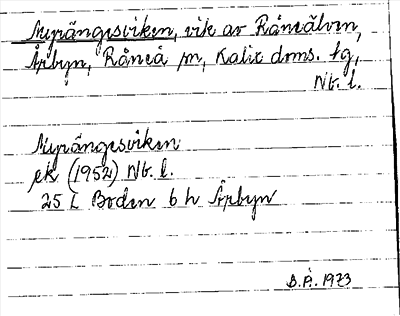 Nyrängesviken, vik av Råneälven,
Årbyn, Råneå sn, Kalix doms. tg,
Nb. l.
Nyrängesviken
ek (1952) Nb. l.
25 L Boden 6 h Årbyn
B.Å. 1973